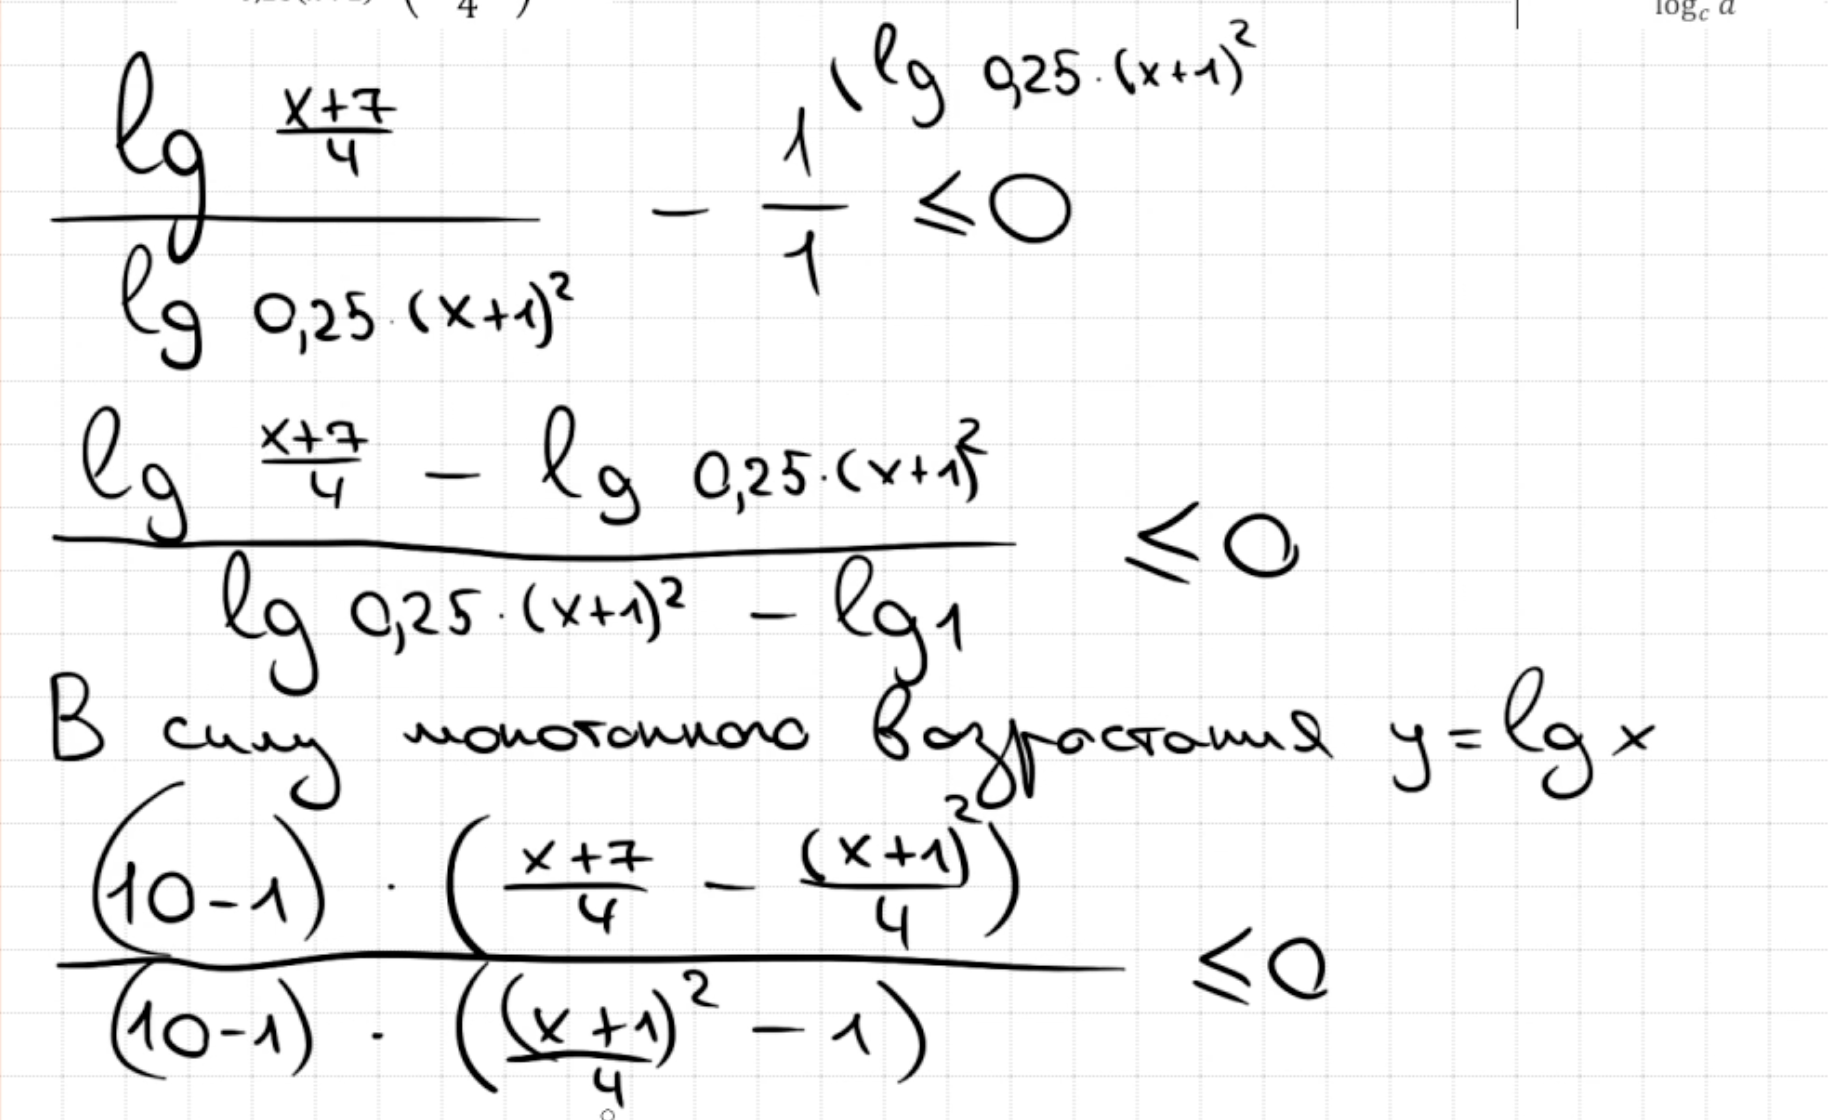 4
log_c a
lg (x+7)/4 / lg 0,25·(x+1)² - 1/1 \ lg 0,25·(x+1)² ⩽0
(lg (x+7)/4 - lg 0,25·(x+1)²) / (lg 0,25·(x+1)² - lg1) ⩽0
В силу монотонного возрастания y=lg x
(10-1)·((x+7)/4 - (x+1)²/4) / (10-1)·((x+1)²/4 - 1) ⩽0